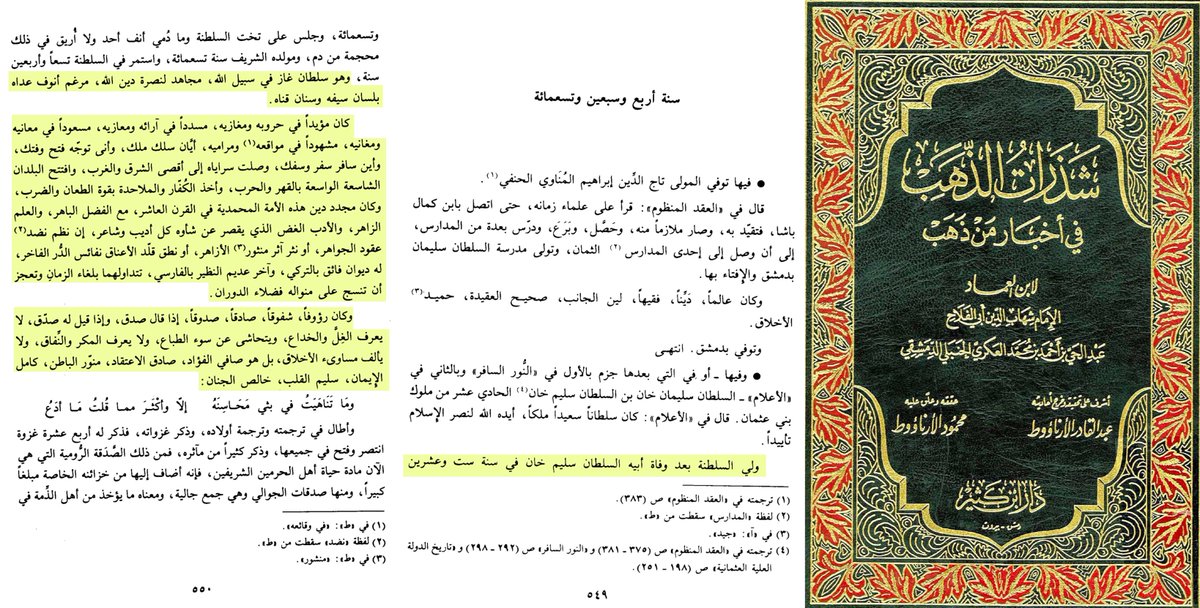 شذرات الذهب
في أخبار من ذهب
لابن العماد
الإمام شهاب الدين أبي الفلاح
عبد الحي بن أحمد بن محمد العكري الحنبلي الدمشقي
أشرف على تحقيقه وخرج أحاديثه
عبد القادر الأرناؤوط
حققه وعلق عليه
محمود الأرناؤوط
دار ابن كثير
دمشق - بيروت
سنة أربع وسبعين وتسعمائة
● فيها توفي المولى تاج الدِّين إبراهيم المُنَاوي الحنفي(١).
قال في «العقد المنظوم»: قرأ على علماء زمانه، حتى اتصل بابن كمال
باشا، فتقيّد به، وصار ملازماً منه، وحَصَّل، وبَرَعَ، ودرّس بعدة من المدارس،
إلى أن وصل إلى إحدى المدارس(٢) الثمان، وتولى مدرسة السلطان سليمان
بدمشق والإِفتاء بها.
وكان عالماً، دَيِّناً، فقيهاً، لين الجانب، صحيح العقيدة، حميد(٣)
الأخلاق.
وتوفي بدمشق. انتهى
● وفيها ـ أو في التي بعدها جزم بالأول في «النُّور السافر» وبالثاني في
«الأعلام» ـ السلطان سليمان خان بن السلطان سليم خان(٤) الحادي عشر من ملوك
بني عثمان. قال في «الأعلام»: كان سلطاناً سعيداً ملكاً، أيده الله لنصر الإسلام
تأييداً.
ولي السلطنة بعد وفاة أبيه السلطان سليم خان في سنة ست وعشرين
(١) ترجمته في «العقد المنظوم» ص (٣٨٣).
(٢) لفظة «المدارس» سقطت من «ط».
(٣) في «آ»: «جيد».
(٤) ترجمته في «العقد المنظوم» ص (٣٧٥ ـ ٣٨١) و«النور السافر» ص (٢٩٢ ـ ٢٩٨) و«تاريخ الدولة
العلية العثمانية» ص (١٩٨ ـ ٢٥١).
٥٤٩
وتسعمائة، وجلس على تخت السلطنة وما دُمي أنف أحد ولا أُريق في ذلك
محجمة من دم، ومولده الشريف سنة تسعمائة، واستمر في السلطنة تسعاً وأربعين
سنة، وهو سلطان غاز في سبيل الله، مجاهد لنصرة دين الله، مرغم أنوف عداه
بلسان سيفه وسنان قناه.
كان مؤيداً في حروبه ومغازيه، مسدداً في آرائه ومعازيه، مسعوداً في معانيه
ومغانيه، مشهوداً في مواقعه(١) ومراميه، أيّان سلك ملك، وأنى توجّه فتح وفتك،
وأين سافر سفر وسفك، وصلت سراياه إلى أقصى الشرق والغرب، وافتتح البلدان
الشاسعة الواسعة بالقهر والحرب، وأخذ الكُفّار والملاحدة بقوة الطعان والضرب،
وكان مجدد دين هذه الأمة المحمدية في القرن العاشر، مع الفضل الباهر، والعلم
الزاهر، والأدب الغض الذي يقصر عن شأوه كل أديب وشاعر، إن نظم نضد(٢)
عقود الجواهر، أو نثر آثر منثور(٣) الأزاهر، أو نطق قلّد الأعناق نفائس الدُّر الفاخر،
له ديوان فائق بالتركي، وآخر عديم النظير بالفارسي، تتداولهما بلغاء الزمان وتعجز
أن تنسج على منواله فضلاء الدوران.
وكان رؤوفاً، شفوقاً، صادقاً، صدوقاً، إذا قال صدق، وإذا قيل له صدّق، لا
يعرف الغِلَّ والخداع، ويتحاشى عن سوء الطباع، ولا يعرف المكر والنِّفاق، ولا
يألف مساوىء الأخلاق، بل هو صافي الفؤاد، صادق الاعتقاد، منوّر الباطن، كامل
الإيمان، سليم القلب، خالص الجنان:
وَمَا تَنَاهَيْتُ في بثي مَحَاسِنَهُ إلّا وأكثَرَ مما قُلتُ مَا أدَعُ
وأطال في ترجمته وترجمة أولاده، وذكر غزواته، فذكر له أربع عشرة غزوة
انتصر وفتح في جميعها، وذكر كثيراً من مآثره، فمن ذلك الصَّدقة الرُّومية التي هي
الآن مادة حياة أهل الحرمين الشريفين، فإنه أضاف إليها من خزائنه الخاصة مبلغاً
كبيراً، ومنها صدقات الجوالي وهي جمع جالية، ومعناه ما يؤخذ من أهل الذِّمة في
(١) في «ط»: «في وقائعه».
(٢) لفظة «نضد» سقطت من «ط».
(٣) في «ط»: «منشور».
٥٥٠